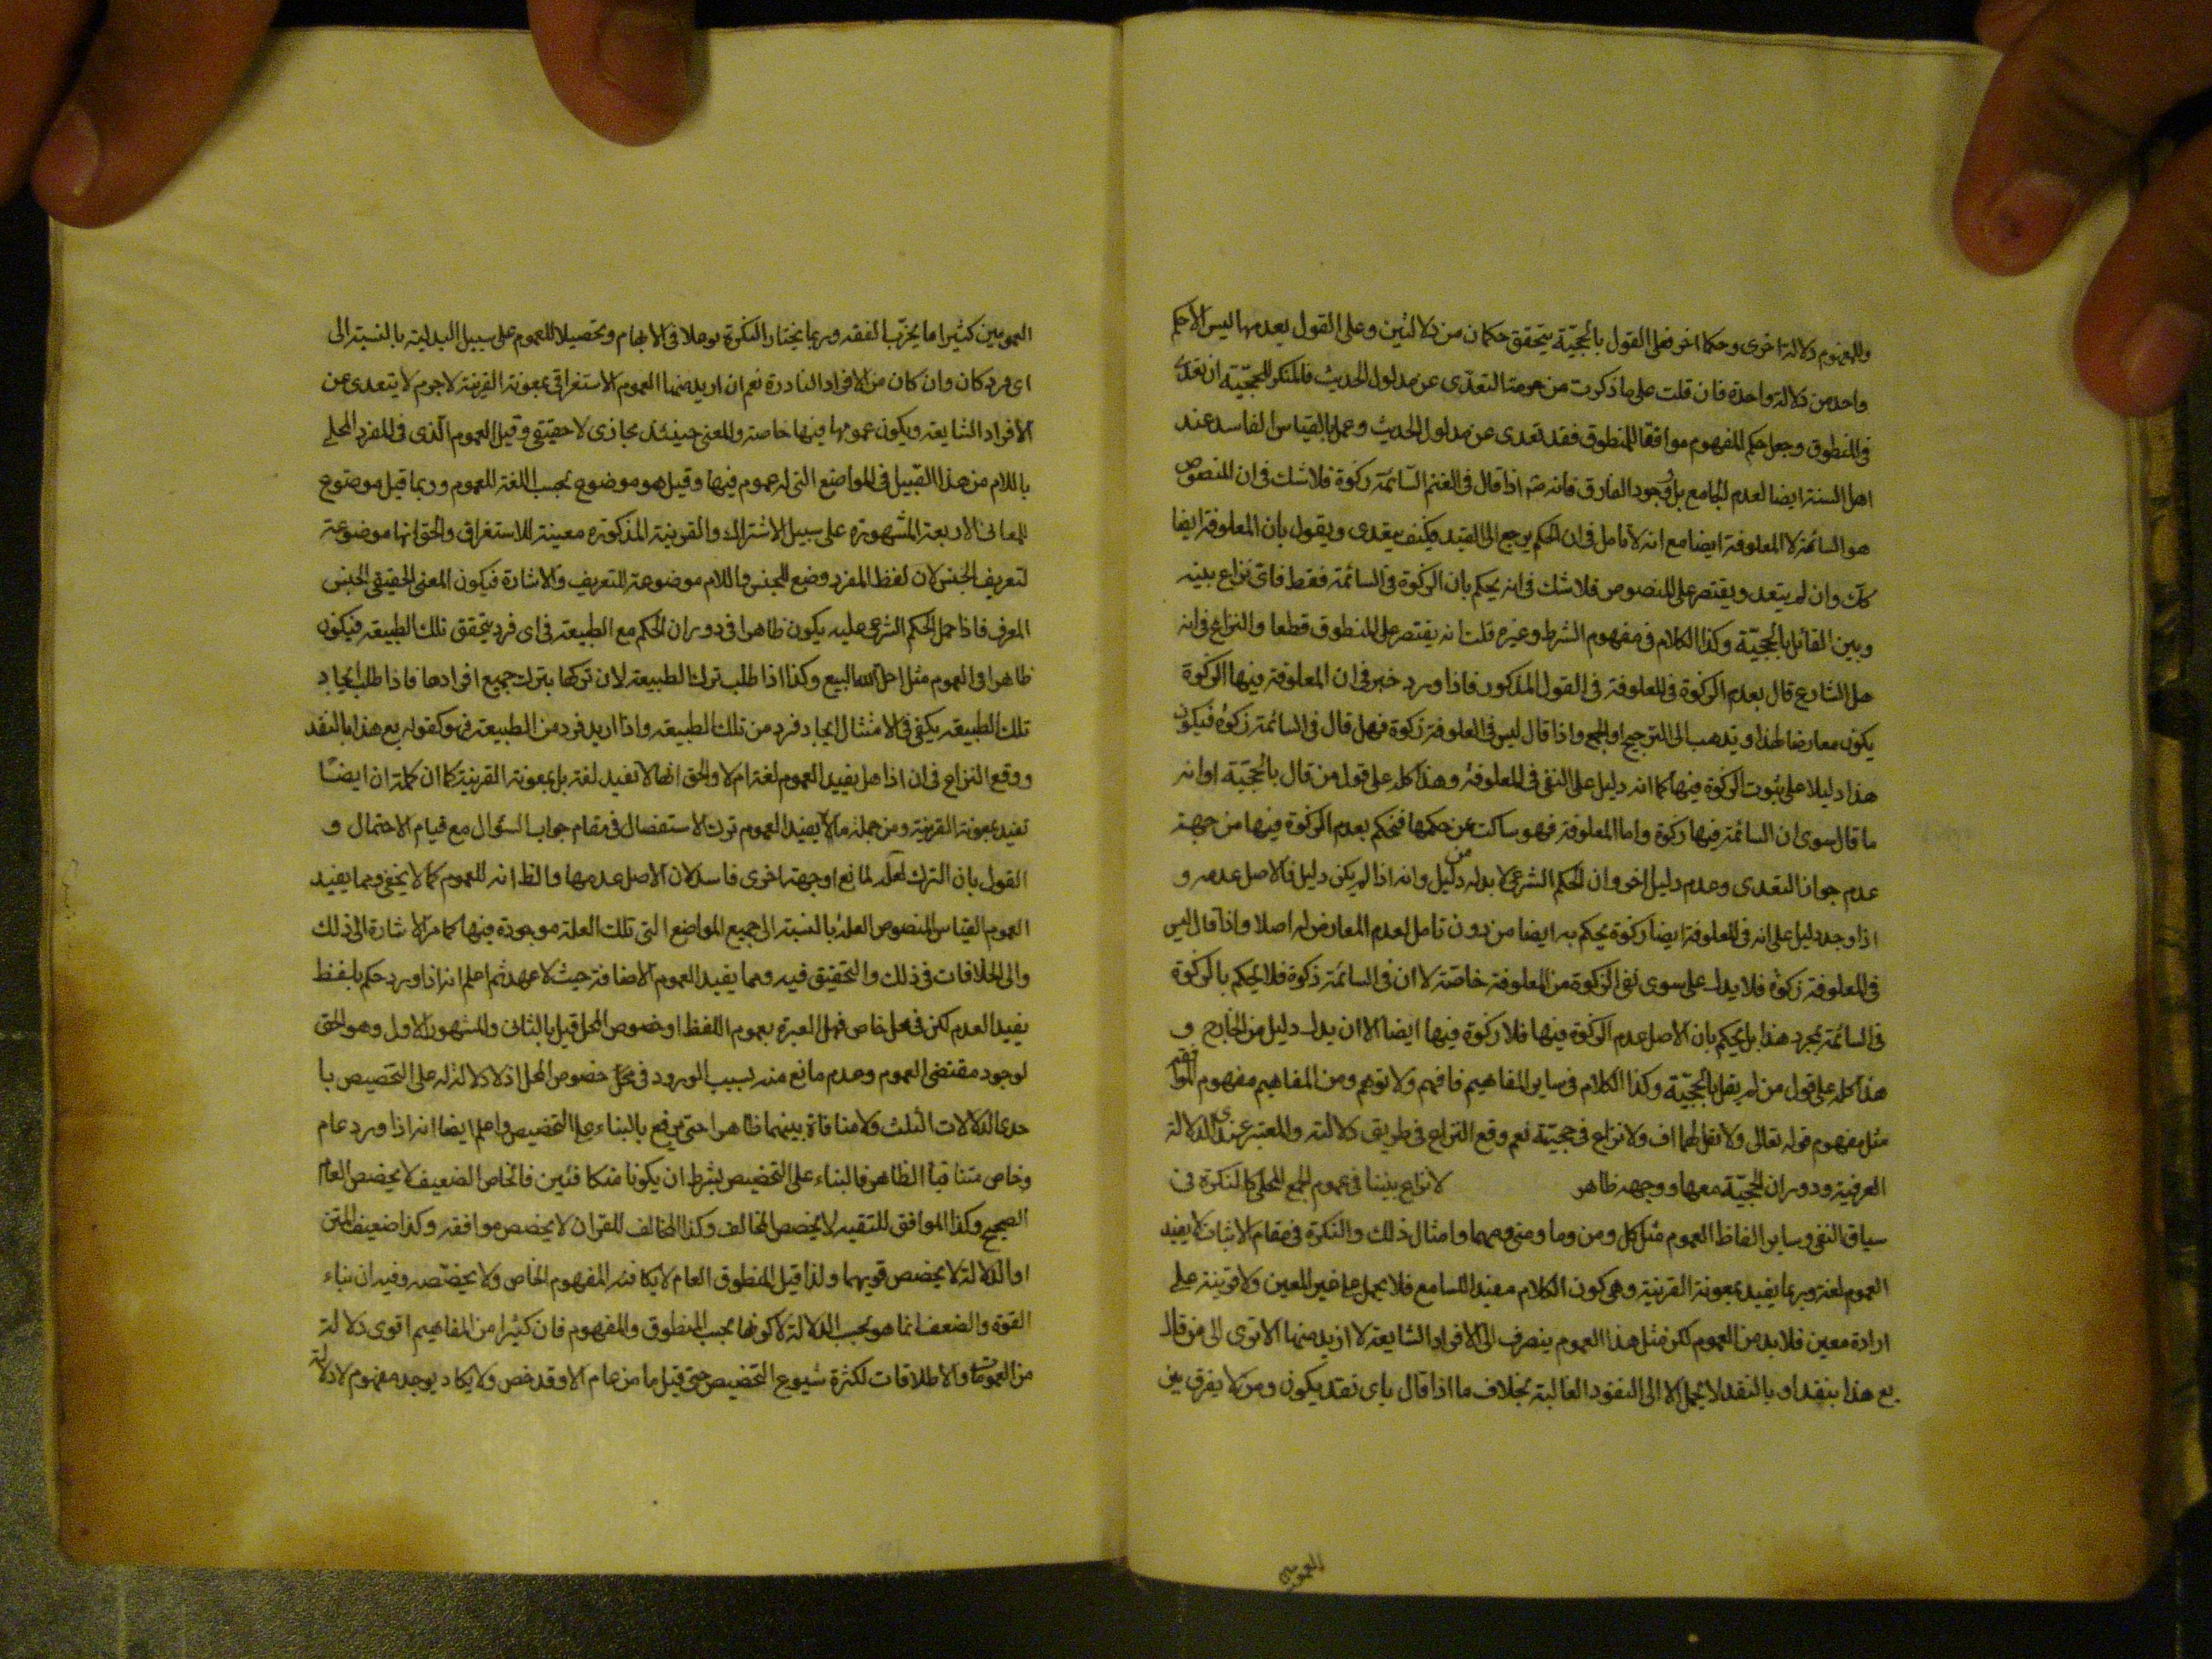 وللمفهوم دلالة اخرى وحكما اخر فعلى القول بالحجيّة يتحقق حكمان من دلالتين وعلى القول بعدمها ليس الا حكم
واحد من دلالة واحدة فان قلت على ما ذكرت من حرمة التعدّى عن مدلول الحديث فالمنكر للحجيّة ان تعدّى
فى المنطوق وجعل حكم المفهوم موافقا للمنطوق فقد تعدى عن مدلول الحديث وعمل بالقياس الفاسد عند
اهل السنة ايضا لعدم الجامع بل وجود الفارق فانه اذا قال فى الغنم السّائمة زكوة فلا شك فى ان المنصوص
هو السائمة لا المعلوفة ايضا مع انه لا تامل فى ان الحكم يرجع الى القيد فكيف يتعدى ويقول بان المعلوفة ايضا
كك وان لم يتعد ويقتصر على المنصوص فلا شك فى انه يحكم بان الزكوة فى السائمة فقط فاى نزاع بينه
وبين القائل بالحجيّة وكذا الكلام فى مفهوم الشرط وغيره قلت انه يقتصر على المنطوق قطعا والنزاع فى انه
هل الشارع قال بعدم الزكوة فى المعلوفة فى القول المذكور فاذا ورد خبر فى ان المعلوفة فيها الزكوة
يكون معارضا لهذا ويذهب الى الترجيح او الجمع واذا قال ليس فى المعلوفة زكوة فهل قال فى السائمة زكوة فيكون
هذا دليلا على ثبوت الزكوة فيها كما انه دليل على النفى فى المعلوفة وهذا كله على قول من قال بالحجيّة او انه
ما قال سوى ان السائمة فيها زكوة واما المعلوفة فهو ساكت عن حكمها فنحكم بعدم الزكوة فيها من جهة
عدم جواز التعدى وعدم دليل اخر وان الحكم الشرعى لا بد له من دليل وانه اذا لم يكن دليل فالاصل عدمه و
اذا وجد دليل على انه فى المعلوفة ايضا زكوة يحكم به ايضا من دون تامل لعدم المعارض له اصلا واذا قال ليس
فى المعلوفة زكوة فلا يدل على سوى نفى الزكوة من المعلوفة خاصّة لا ان فى السائمة زكوة فلا يحكم بالزكوة
فى السائمة بمجرد هذا بل يحكم بان الاصل عدم الزكوة فيها فلا زكوة فيها ايضا الا ان يدل دليل من الخارج و
هذا كله على قول من لم يقل بالحجيّة وكذا الكلام فى ساير المفاهيم فافهم ولا توهم ومن المفاهيم مفهوم الموافقة
مثل مفهوم قوله تعالى ولا تقل لهما اف ولا نزاع فى حجيّته نعم وقع النزاع فى طريق دلالته والمعتبر عندى الدلالة
العرفية ودوران الحجيّة معها ووجهه ظاهر لا نزاع بيننا فى عموم الجمع المحلى كالنكرة فى
سياق النفى وساير الفاظ العموم مثل كل ومن وما ومتى ومهما وامثال ذلك والنكرة فى مقام الاثبات لا يفيد
العموم لغة وربما يفيد بمعونة القرينة وهى كون الكلام مفيدا للسامع فلا يحمل على غير المعين ولا قرينة على
ارادة معين فلا بد من العموم لكن مثل هذا العموم ينصرف الى الافراد الشايعة لا ازيد منها الا ترى الى من قال
بع هذا بنقد او بالنقد لا يحمل الا الى النقود الغالبة بخلاف ما اذا قال باى نقد يكون ومن لا يفرق بين
العمومين
العمومين كثيرا ما يخرّب الفقه وربما يختار النكرة توغلا فى الابهام وتحصيلا للعموم على سبيل البدلية بالنسبة الى
اى فرد كان وان كان من الافراد النادرة نعم ان اريد منها العموم الاستغراقى بمعونة القرينة لا جرم لا يتعدى عن
الافراد الشايعة ويكون عمومها فيها خاصة والمعنى حينئذ مجازى لا حقيقى وقيل العموم الّذى فى المفرد المحلى
باللام من هذا القبيل فى المواضع التى له عموم فيها وقيل هو موضوع بحسب اللغة للعموم وربما قيل موضوع
للمعانى الاربعة المشهورة على سبيل الاشتراك والقرينة المذكورة معينة للاستغراق والحق انها موضوعة
لتعريف الجنس لان لفظ المفرد وضع للجنس واللام موضوعة للتعريف والاشارة فيكون المعنى الحقيقى الجنس
المعرف فاذا حمل الحكم الشرعى عليه يكون ظاهرا فى دوران الحكم مع الطبيعة فى اى فرد يتحقق تلك الطبيعة فيكون
ظاهرا فى العموم مثل احل الله البيع وكذا اذا طلب ترك الطبيعة لان تركها بترك جميع افرادها فاذا طلب ايجاد
تلك الطبيعة يكفى فى الامتثال ايجاد فرد من تلك الطبيعة واذا اريد فرد من الطبيعة فهو كقوله بع هذا بالنقد
ووقع النزاع فى ان اذا هل يفيد العموم لغة ام لا والحق انها لا تفيد لغة بل بمعونة القرينة كما ان كلمة ان ايضا
تفيد بمعونة القرينة ومن جملة ما يفيد العموم ترك الاستفصال فى مقام جواب السؤال مع قيام الاحتمال و
القول بان الترك لعله لمانع او جهة اخرى فاسد لان الاصل عدمها والظ انه للعموم كما لا يخفى ومما يفيد
العموم القياس المنصوص العلة بالنسبة الى جميع المواضع التى تلك العلة موجودة فيها كما مرّ الاشارة الى ذلك
والى الخلافات فى ذلك والتحقيق فيه ومما يفيد العموم الاضافة حيث لا عهد ثم اعلم انه اذا ورد حكم بلفظ
يفيد العدم لكن فى محل خاص فهل العبرة بعموم اللفظ او خصوص المحل قيل بالثانى والمشهور الاول وهو الحق
لوجود مقتضى العموم وعدم مانع منه لسبب الورود فى محل خصوص المحل اذ لا دلالة له على التخصيص با
حدى الدلالات الثلث ولا منافاة بينهما ظاهرا حتى يرفع بالبناء على التخصيص واعلم ايضا انه اذا ورد عام
وخاص متنافيا الظاهر فالبناء على التخصيص بشرط ان يكونا متكافئين فالخاص الضعيف لا يخصص العام
الصحيح وكذا الموافق للتقيه لا يخصص المخالف وكذا المخالف للقران لا يخصص موافقه وكذا ضعيف المتن
او الدلالة لا يخصص قويهما ولذا قيل المنطوق العام لا يكافئه المفهوم الخاص ولا يخصّصه وفيه ان بناء
القوة والضعف انما هو بحسب الدلالة لا كونها بحسب المنطوق والمفهوم فان كثيرا من المفاهيم اقوى دلالة
من العمومات والاطلاقات لكثرة شيوع التخصيص حتى قيل ما من عام الا وقد خص ولا يكاد يوجد مفهوم لا دلالة